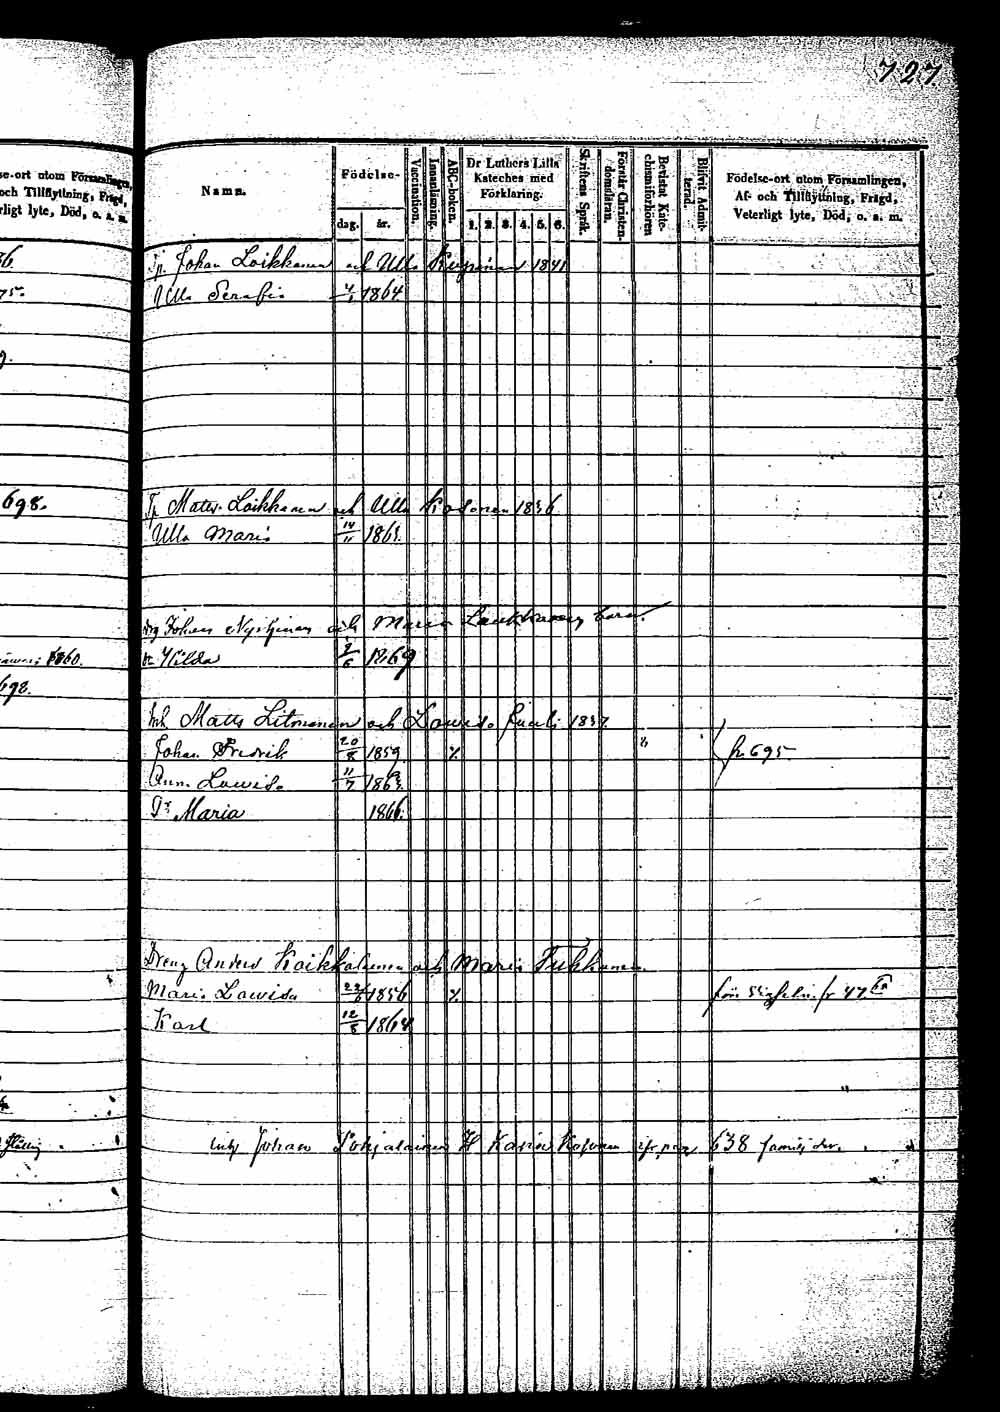 727.
se-ort utom Församlingen,
och Tillflyttning, Frägd,
rligt lyte, Död, o. s. m.
Namn.
Födelse-
dag. år.
Vaccination.
Innanläsning.
ABC-boken.
Dr Luthers Lilla
Kateches med
Förklaring.
1. 2. 3. 4. 5. 6.
Skriftens Språk.
Förstår Christen-
domsläran.
Bevistat Kate-
chismiförhören
Blifvit Admit-
terad.
Födelse-ort utom Församlingen,
Af- och Tillflyttning, Frägd,
Veterligt lyte, Död, o. s. m.
36.
Tp. Johan Loikkanen och Ulla 1841
75.
Ulla Serafia 4/1 1864
9.
698.
Tp Matts Loikkanen och Ulla Kosonen 1836
Ulla Maria 14/11 1863.
Johan och Maria Laukkanen barn.
1860.
Hilda 2/6 1869
698.
Matts Litmanen och Lowisa 1837.
Johan Fredrik 20/8 1859 fr 695
Anna Lowisa 11/7 1863.
Dr Maria 1866.
Dreng Anders Koikkalainen och Maria Tukkanen.
Maria Lowisa 22/6 1856 fr 47
Karl 12/8 1864
Johan Pohjalainen H Karin Kosonen pag 638